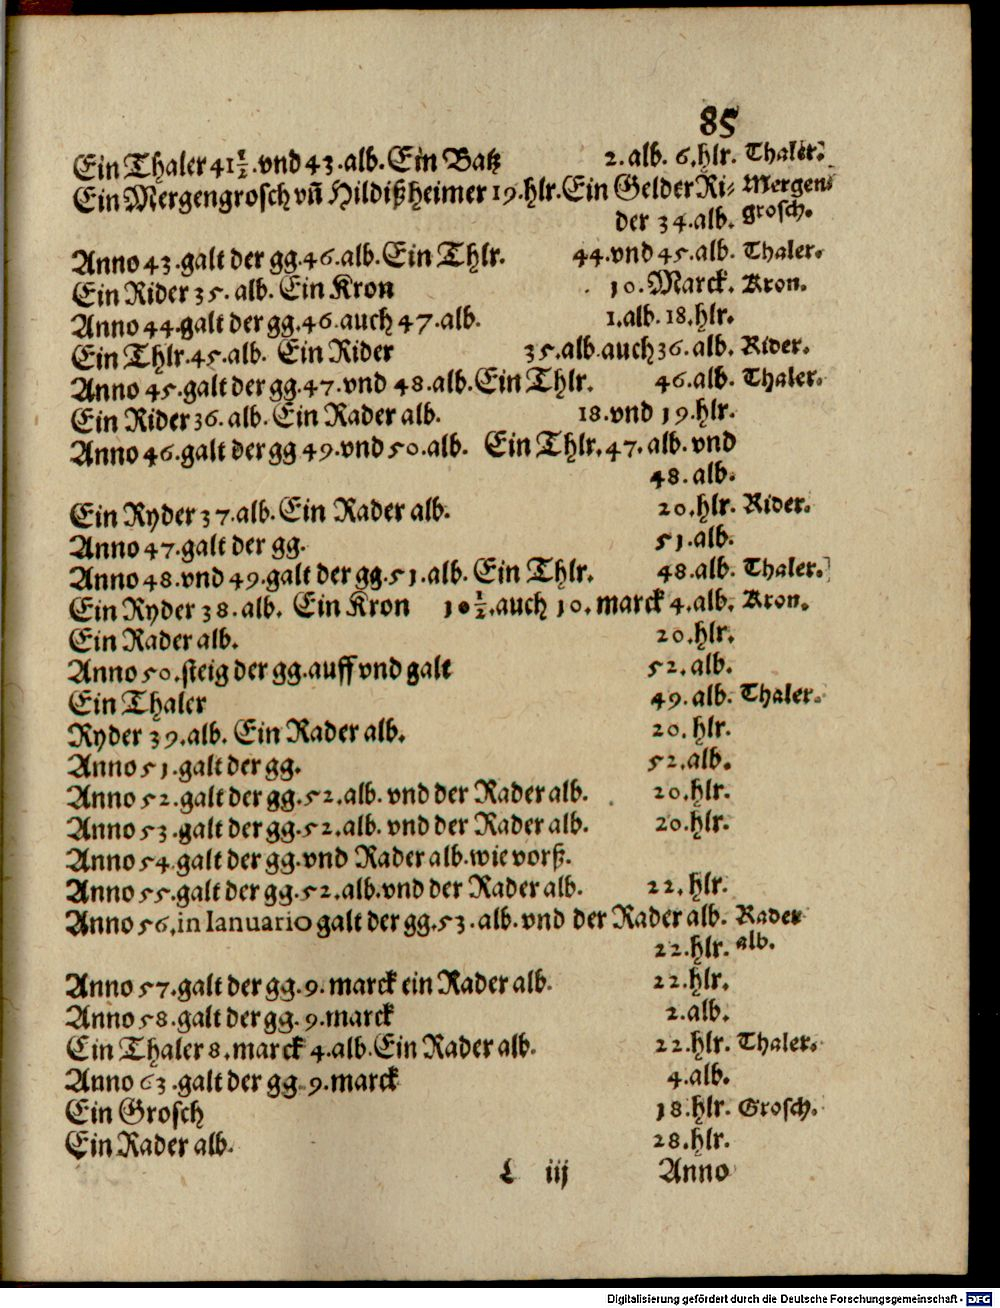 85
Ein Thaler 41½. vnd 43. alb. Ein Batz 2. alb. 6. hlr. Thaler.
Ein Mergengrosch vn̄ Hildißheimer 19. hlr. Ein Gelder Ri⸗ Mergen⸗
der 34. alb. grosch.
Anno 43. galt der gg. 46. alb. Ein Thlr. 44. vnd 45. alb. Thaler.
Ein Rider 35. alb. Ein Kron 10. Marck. Kron.
Anno 44. galt der gg. 46. auch 47. alb. 1. alb. 18. hlr.
Ein Thlr. 45. alb. Ein Rider 35. alb. auch 36. alb. Rider.
Anno 45. galt der gg. 47. vnd 48. alb. Ein Thlr. 46. alb. Thaler.
Ein Rider 36. alb. Ein Rader alb. 18. vnd 19. hlr.
Anno 46. galt der gg 49. vnd 50. alb. Ein Thlr. 47. alb. vnd
48. alb.
Ein Ryder 37. alb. Ein Rader alb. 20. hlr. Rider.
Anno 47. galt der gg. 51. alb.
Anno 48. vnd 49. galt der gg. 51. alb. Ein Thlr. 48. alb. Thaler.
Ein Ryder 38. alb. Ein Kron 10½. auch 10. marck 4. alb. Kron.
Ein Rader alb. 20. hlr.
Anno 50. steig der gg. auff vnd galt 52. alb.
Ein Thaler 49. alb. Thaler.
Ryder 39. alb. Ein Rader alb. 20. hlr.
Anno 51. galt der gg. 52. alb.
Anno 52. galt der gg. 52. alb. vnd der Rader alb. 20. hlr.
Anno 53. galt der gg. 52. alb. vnd der Rader alb. 20. hlr.
Anno 54. galt der gg. vnd Rader alb. wie vorß.
Anno 55. galt der gg. 52. alb. vnd der Rader alb. 22. hlr.
Anno 56. in Ianuario galt der gg. 53. alb. vnd der Rader alb. Rader
22. hlr. alb.
Anno 57. galt der gg. 9. marck ein Rader alb. 22. hlr.
Anno 58. galt der gg. 9. marck 2. alb.
Ein Thaler 8. marck 4. alb. Ein Rader alb. 22. hlr. Thaler.
Anno 63. galt der gg. 9. marck 4. alb.
Ein Grosch 18. hlr. Grosch.
Ein Rader alb. 28. hlr.
L iij Anno
Digitalisierung gefördert durch die Deutsche Forschungsgemeinschaft - DFG